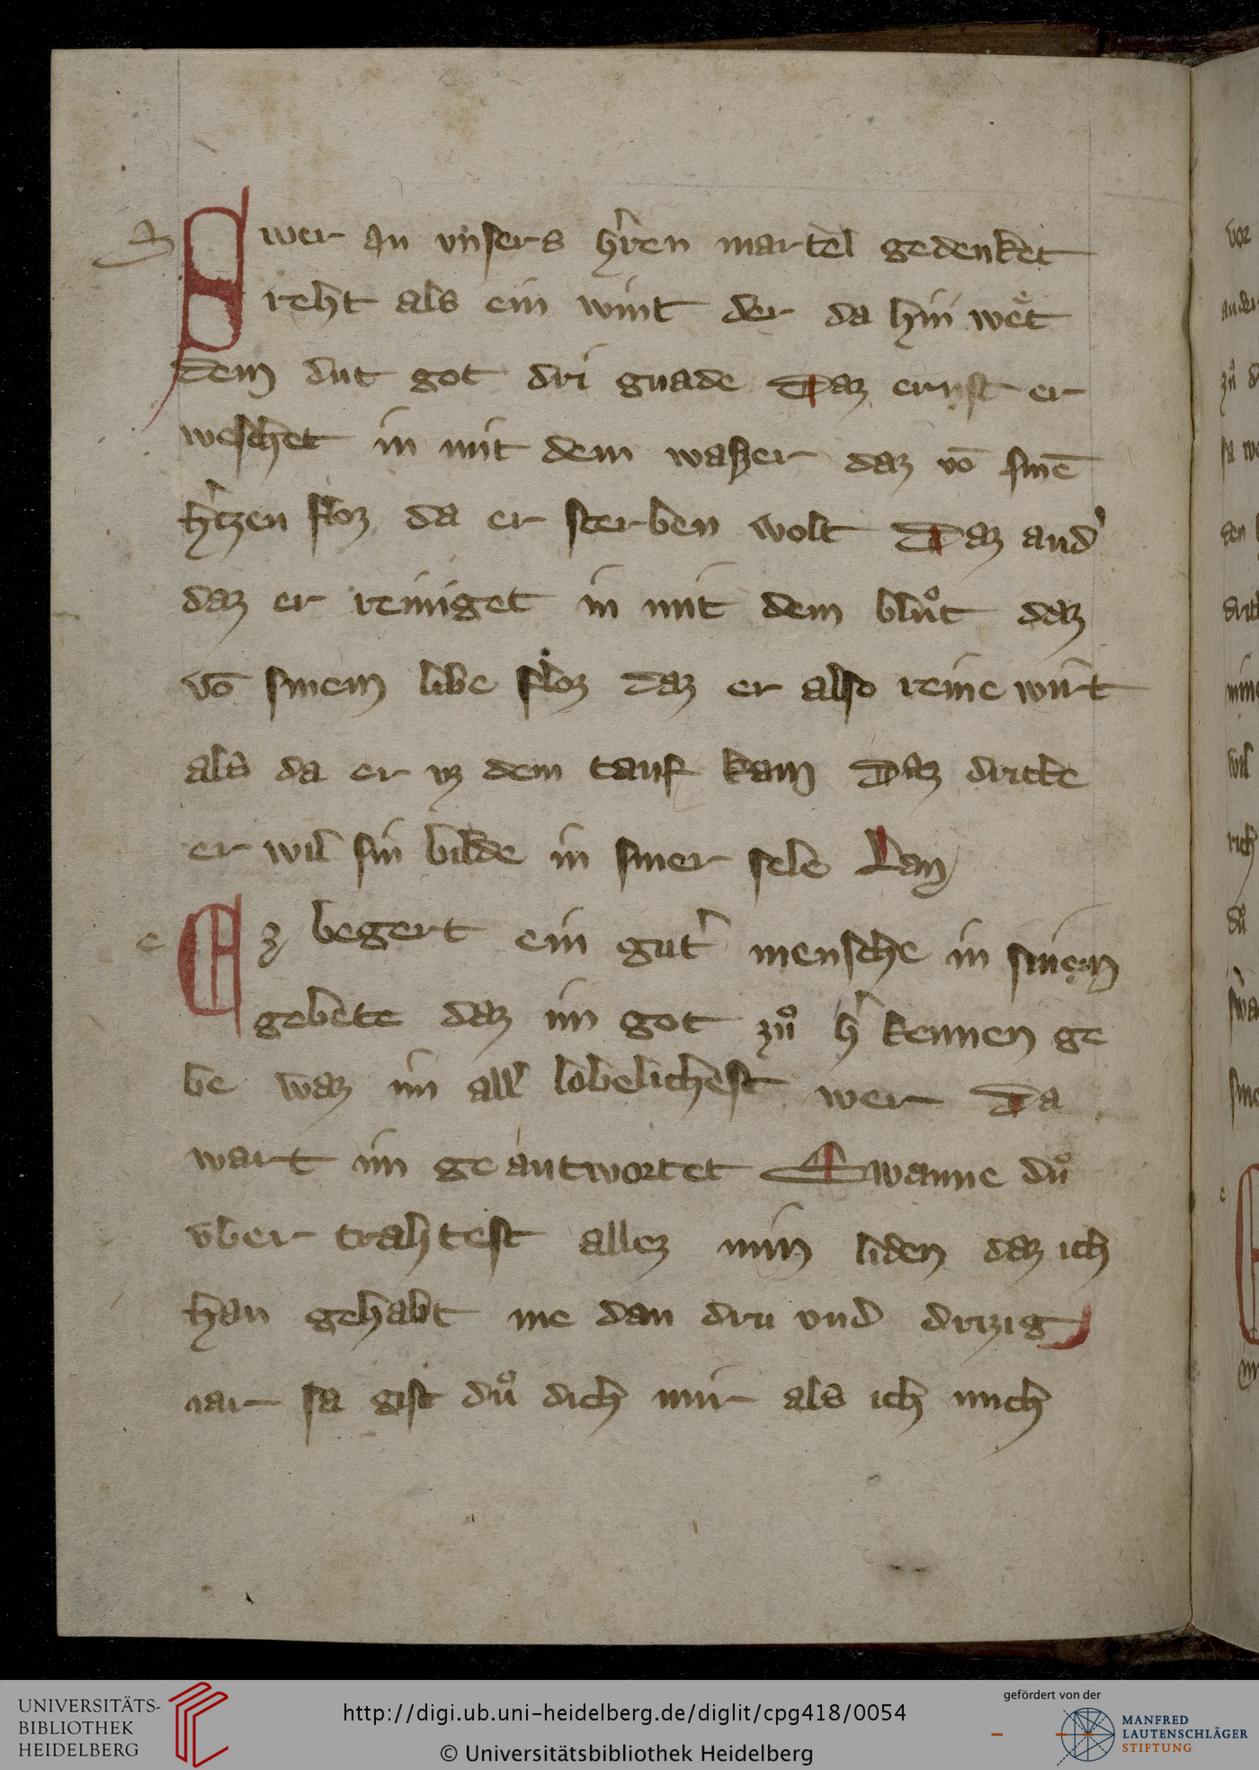 Swer an vnsers h'ren martel gedenket
reht als ein wint der da hin wet
dem dut got dri gnade Daz ernst er
weschet in mit dem waszer daz vō sinē
h'tzen floz da er sterben wolt Daz and'
daz er reiniget in mit dem blůt daz
vō sinem libe floz daz er also reine wirt
als da er vz dem tauf kam Daz dritte
er wil sin bilde in siner sele Lan
Ez begert ein gut' mensche in sinem
gebete daz im got zů h' kennen ge
be waz im all' lobelichest wer Da
wart im geantwortet Swanne dů
vber trahtest allez min liden daz ich
han gehabt me dan dru vnd drizig
iar sa gist dů dich mir als ich mich
UNIVERSITÄTS-
BIBLIOTHEK
HEIDELBERG
http://digi.ub.uni-heidelberg.de/diglit/cpg418/0054
© Universitätsbibliothek Heidelberg
gefördert von der
MANFRED
LAUTENSCHLÄGER
STIFTUNG